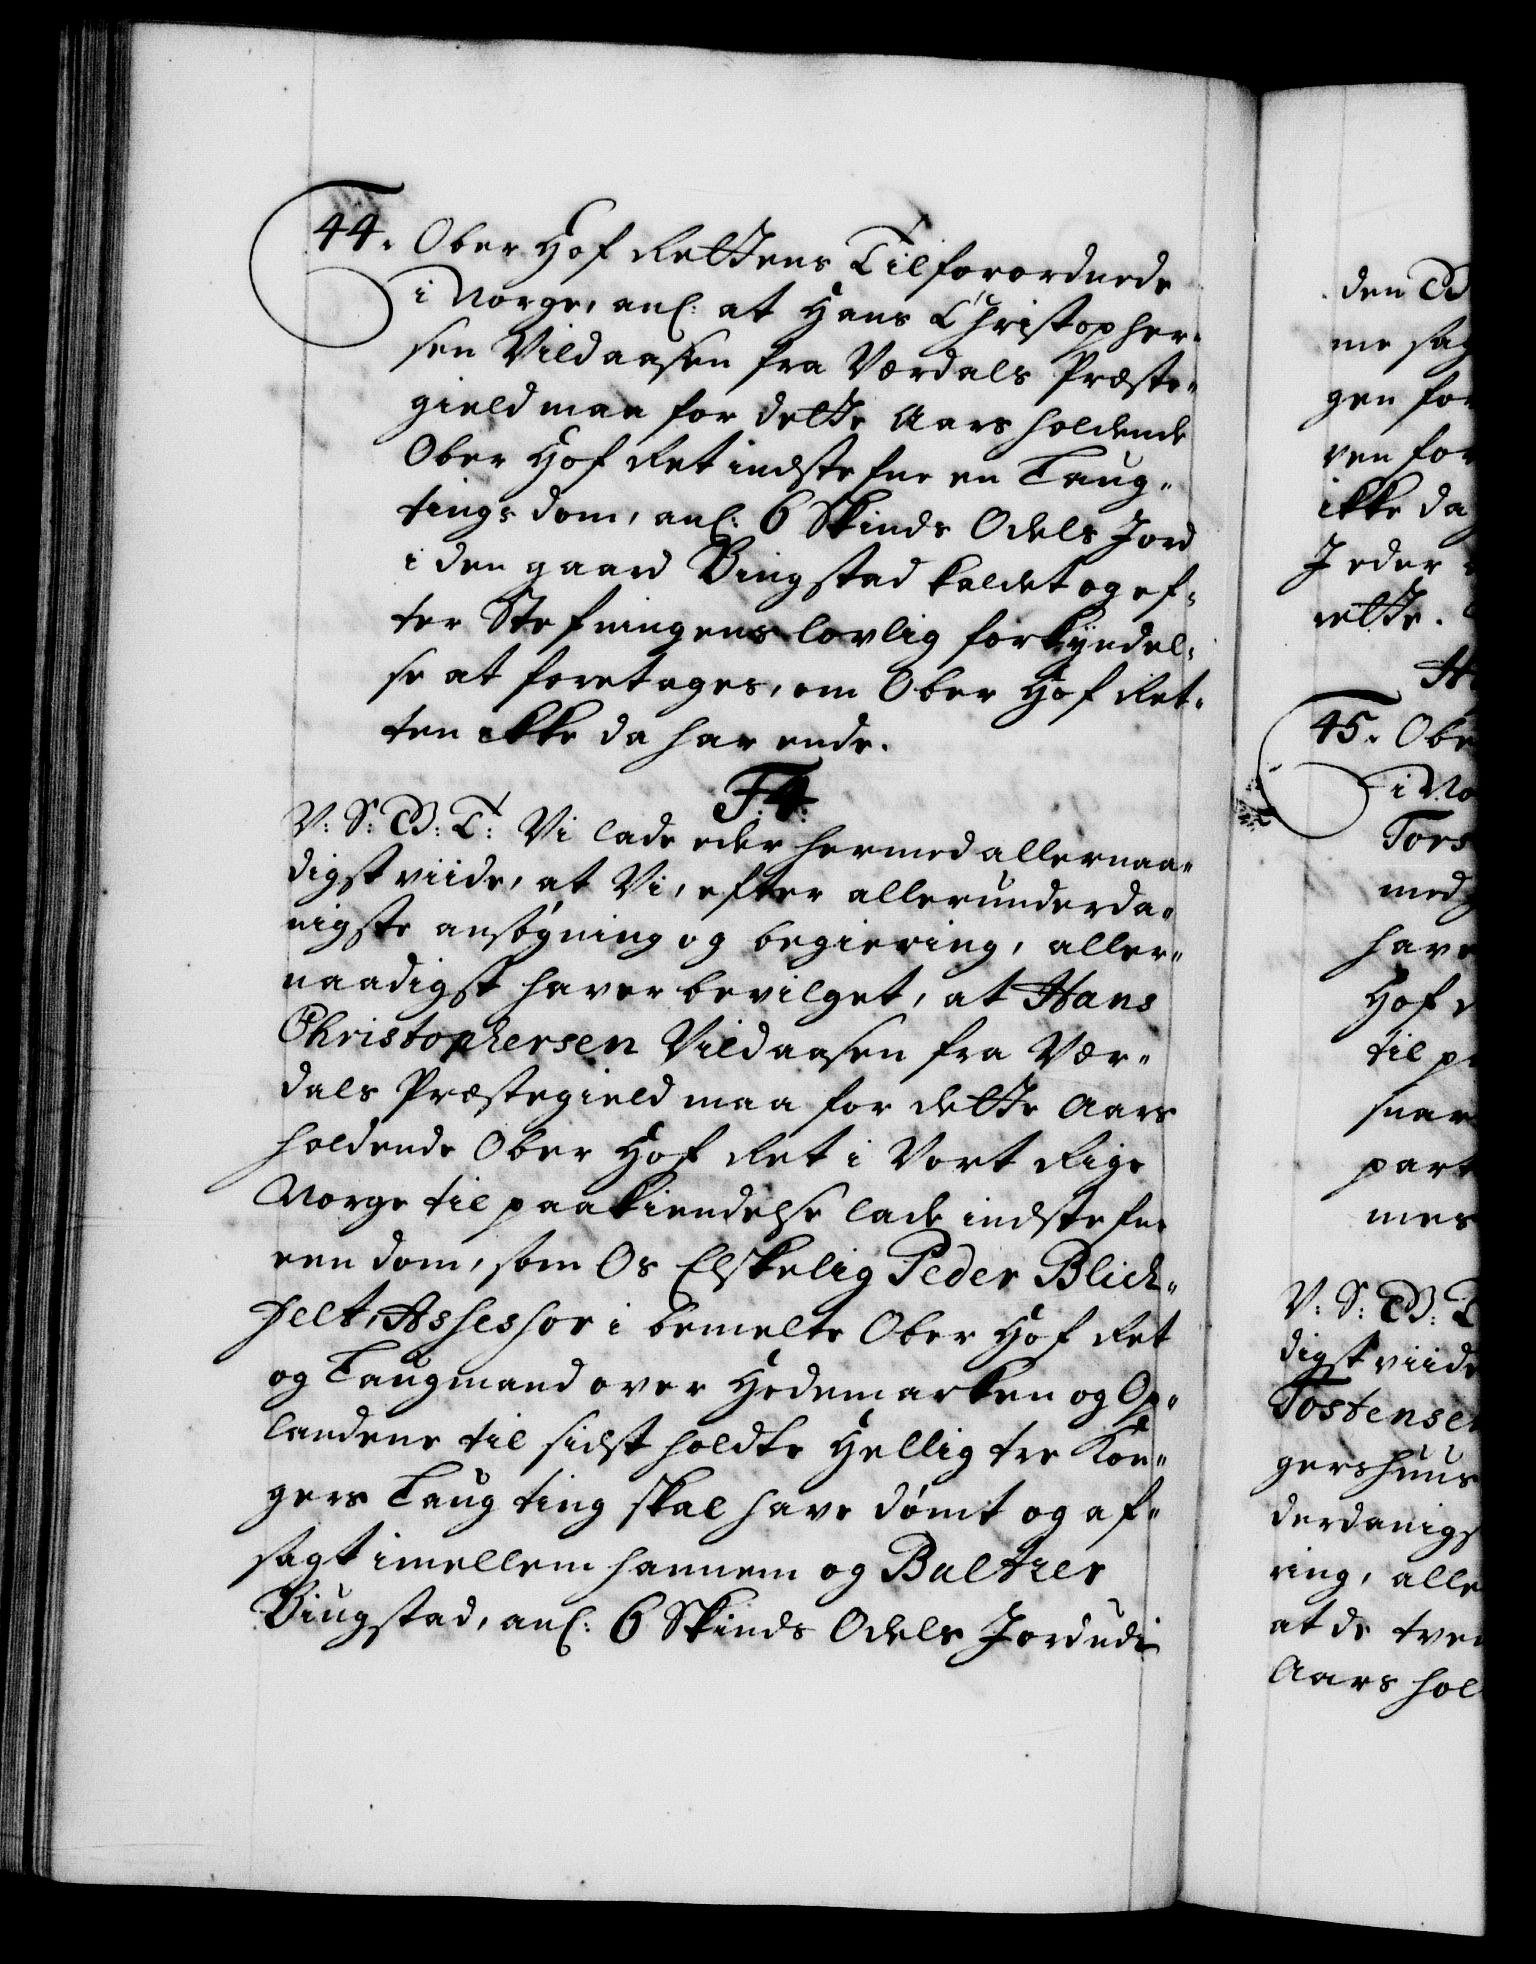 44. Ober Hof Rettens Tilforordnede
i Norge, anl: at Hans Christopher-
sen Vildaasen fra Værdals Præste-
gield maa for dette Aars holdende
Ober Hof Ret indstefne en Laug-
tings dom, anl: 6 Skinds Odels Jord
i den gaard Bingstad kaldet og ef-
ter Stefningens lovlig forkyndel-
se at foretages, om Ober Hof Ret-
ten ikke da har ende.
F. 4.
V: S: G: T: Vi lade eder hermed allernaa-
digst viide, at Vi, efter allerunderda-
nigste ansøgning og begiering, aller-
naadigst haver bevilget, at Hans
Christophersen Vildaasen fra Vær-
dals Præstegield maa for dette Aars
holdende Ober Hof Ret i Vort Rige
Norge til paakiendelse lade indstefne
een dom, som Os Elskelig Peder Blich-
felt, Assessor i bemelte Ober Hof Ret
og Laugmand over Hedemarken og Op-
landene til sidst holdte Hellig tre Kon-
gers Laug ting skal have dømt og af-
sagt imellem hannem og Baltzer
Bingstad, anl: 6 Skinds Odels Jord udi
den
me sag
gen for
ven for
ikke da
I eder
rette.
45. Obe
i No
Tors
med
have
Hof
til p
snar
part
mes
V: S: G: T
digst viide
Tostensen
gershuus
derdanigs
ring, alle
at de tven
Aars hol